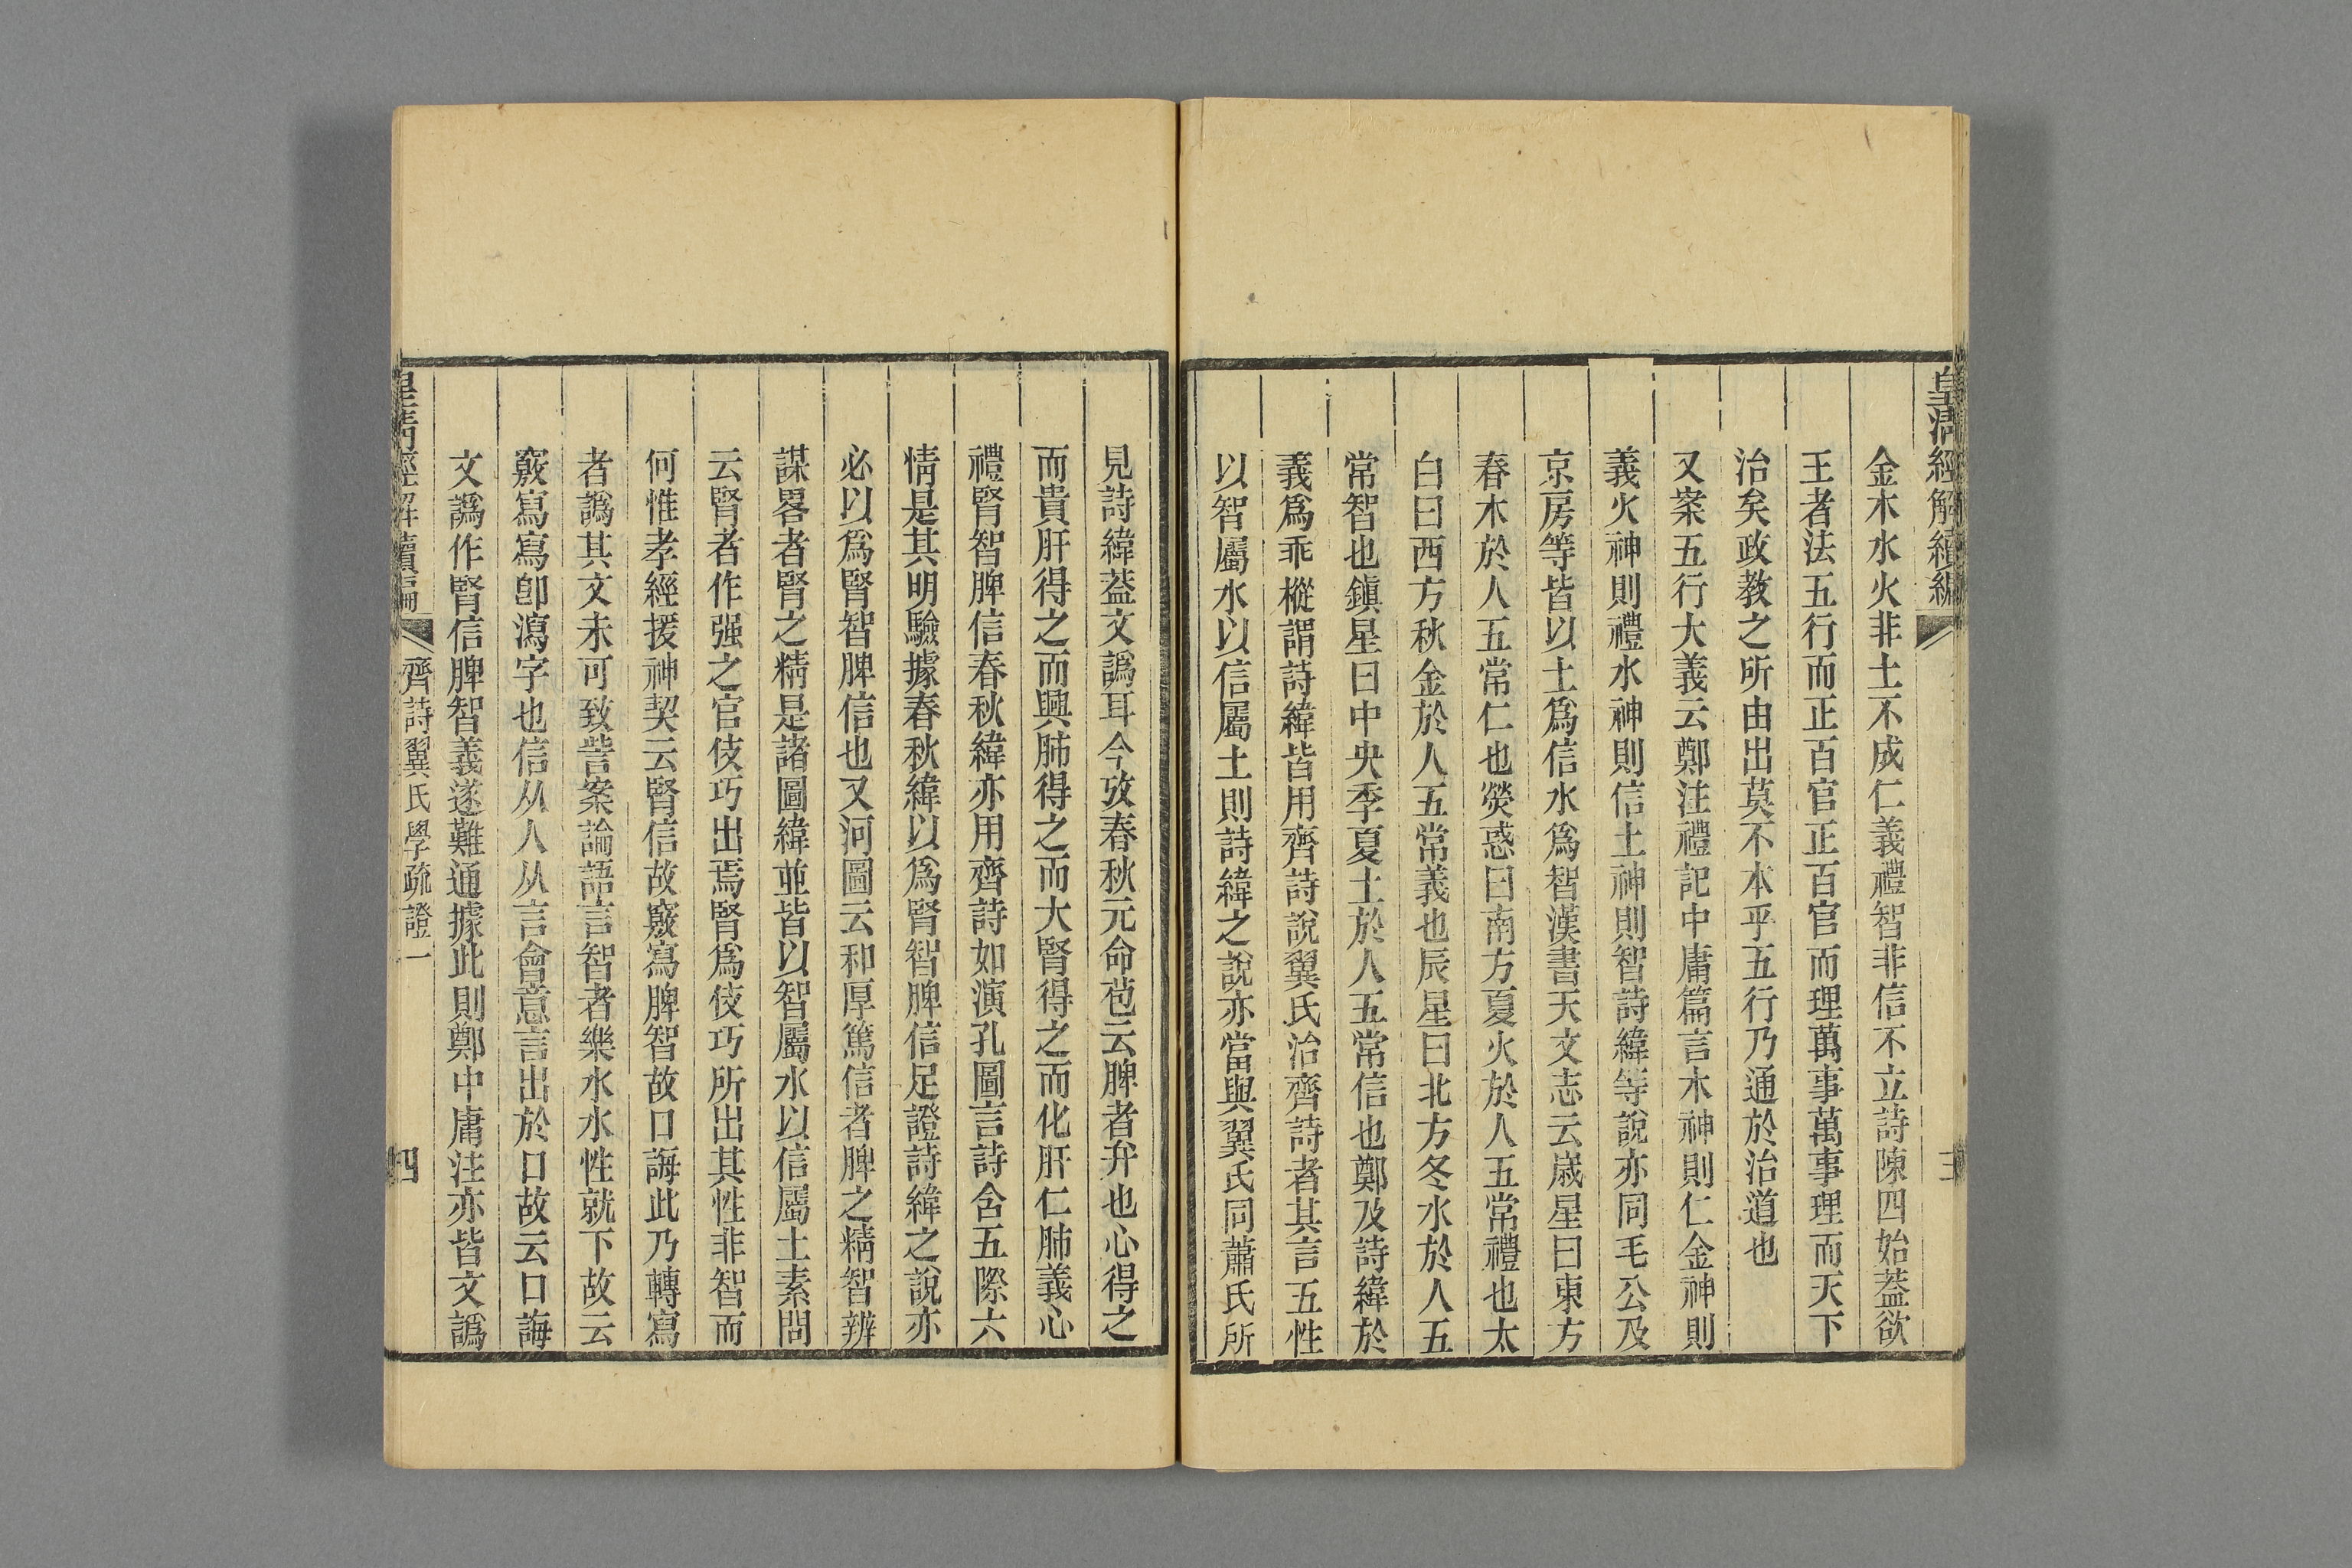 皇清經解續編
三
金木水火非土不成仁義禮智非信不立詩陳四始葢欲
王者法五行而正百官正百官而理萬事萬事理而天下
治矣政教之所由出莫不本乎五行乃通於治道也
又案五行大義云鄭注禮記中庸篇言木神則仁金神則
義火神則禮水神則信土神則智詩緯等說亦同毛公及
京房等皆以土爲信水爲智漢書天文志云歲星曰東方
春木於人五常仁也熒惑曰南方夏火於人五常禮也太
白曰西方秋金於人五常義也辰星曰北方冬水於人五
常智也鎭星曰中央季夏土於人五常信也鄭及詩緯於
義爲乖樅謂詩緯皆用齊詩說翼氏治齊詩者其言五性
以智屬水以信屬土則詩緯之說亦當與翼氏同蕭氏所
見詩緯葢文譌耳今攷春秋元命苞云脾者弁也心得之
而貴肝得之而興肺得之而大腎得之而化肝仁肺義心
禮腎智脾信春秋緯亦用齊詩如演孔圖言詩含五際六
情是其明驗據春秋緯以爲腎智脾信足證詩緯之說亦
必以爲腎智脾信也又河圖云和厚篤信者脾之精智辨
謀畧者腎之精是諸圖緯並皆以智屬水以信屬土素問
云腎者作强之官伎巧出焉腎爲伎巧所出其性非智而
何惟孝經援神契云腎信故竅寫脾智故口誨此乃轉寫
者譌其文未可致訾案論語言智者樂水水性就下故云
竅寫寫卽瀉字也信从人从言會意言出於口故云口誨
文譌作腎信脾智義遂難通據此則鄭中庸注亦皆文譌
皇清經解續編
齊詩翼氏學疏證一
四